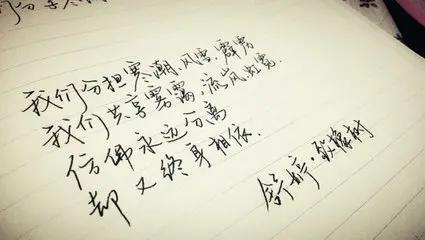 我们分担寒潮、风雷、霹雳
我们共享雾霭、流岚、虹霓
仿佛永远分离
却又终身相依.
舒婷·致橡树